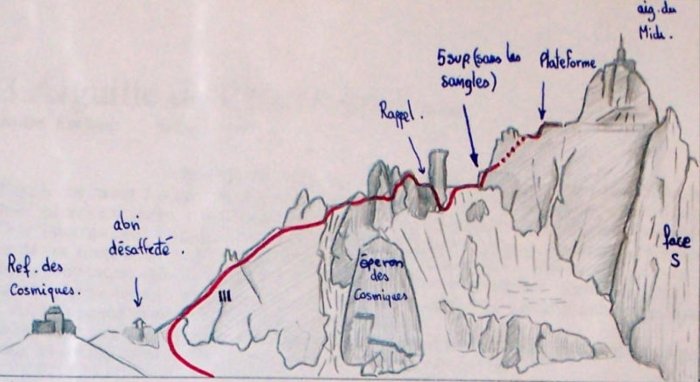 aig. du
Midi.
5 sup (sans les
sangles)
Plateforme
Rappel.
abri
désaffecté.
Ref. des
Cosmiques.
éperon
des
Cosmiques
face
S